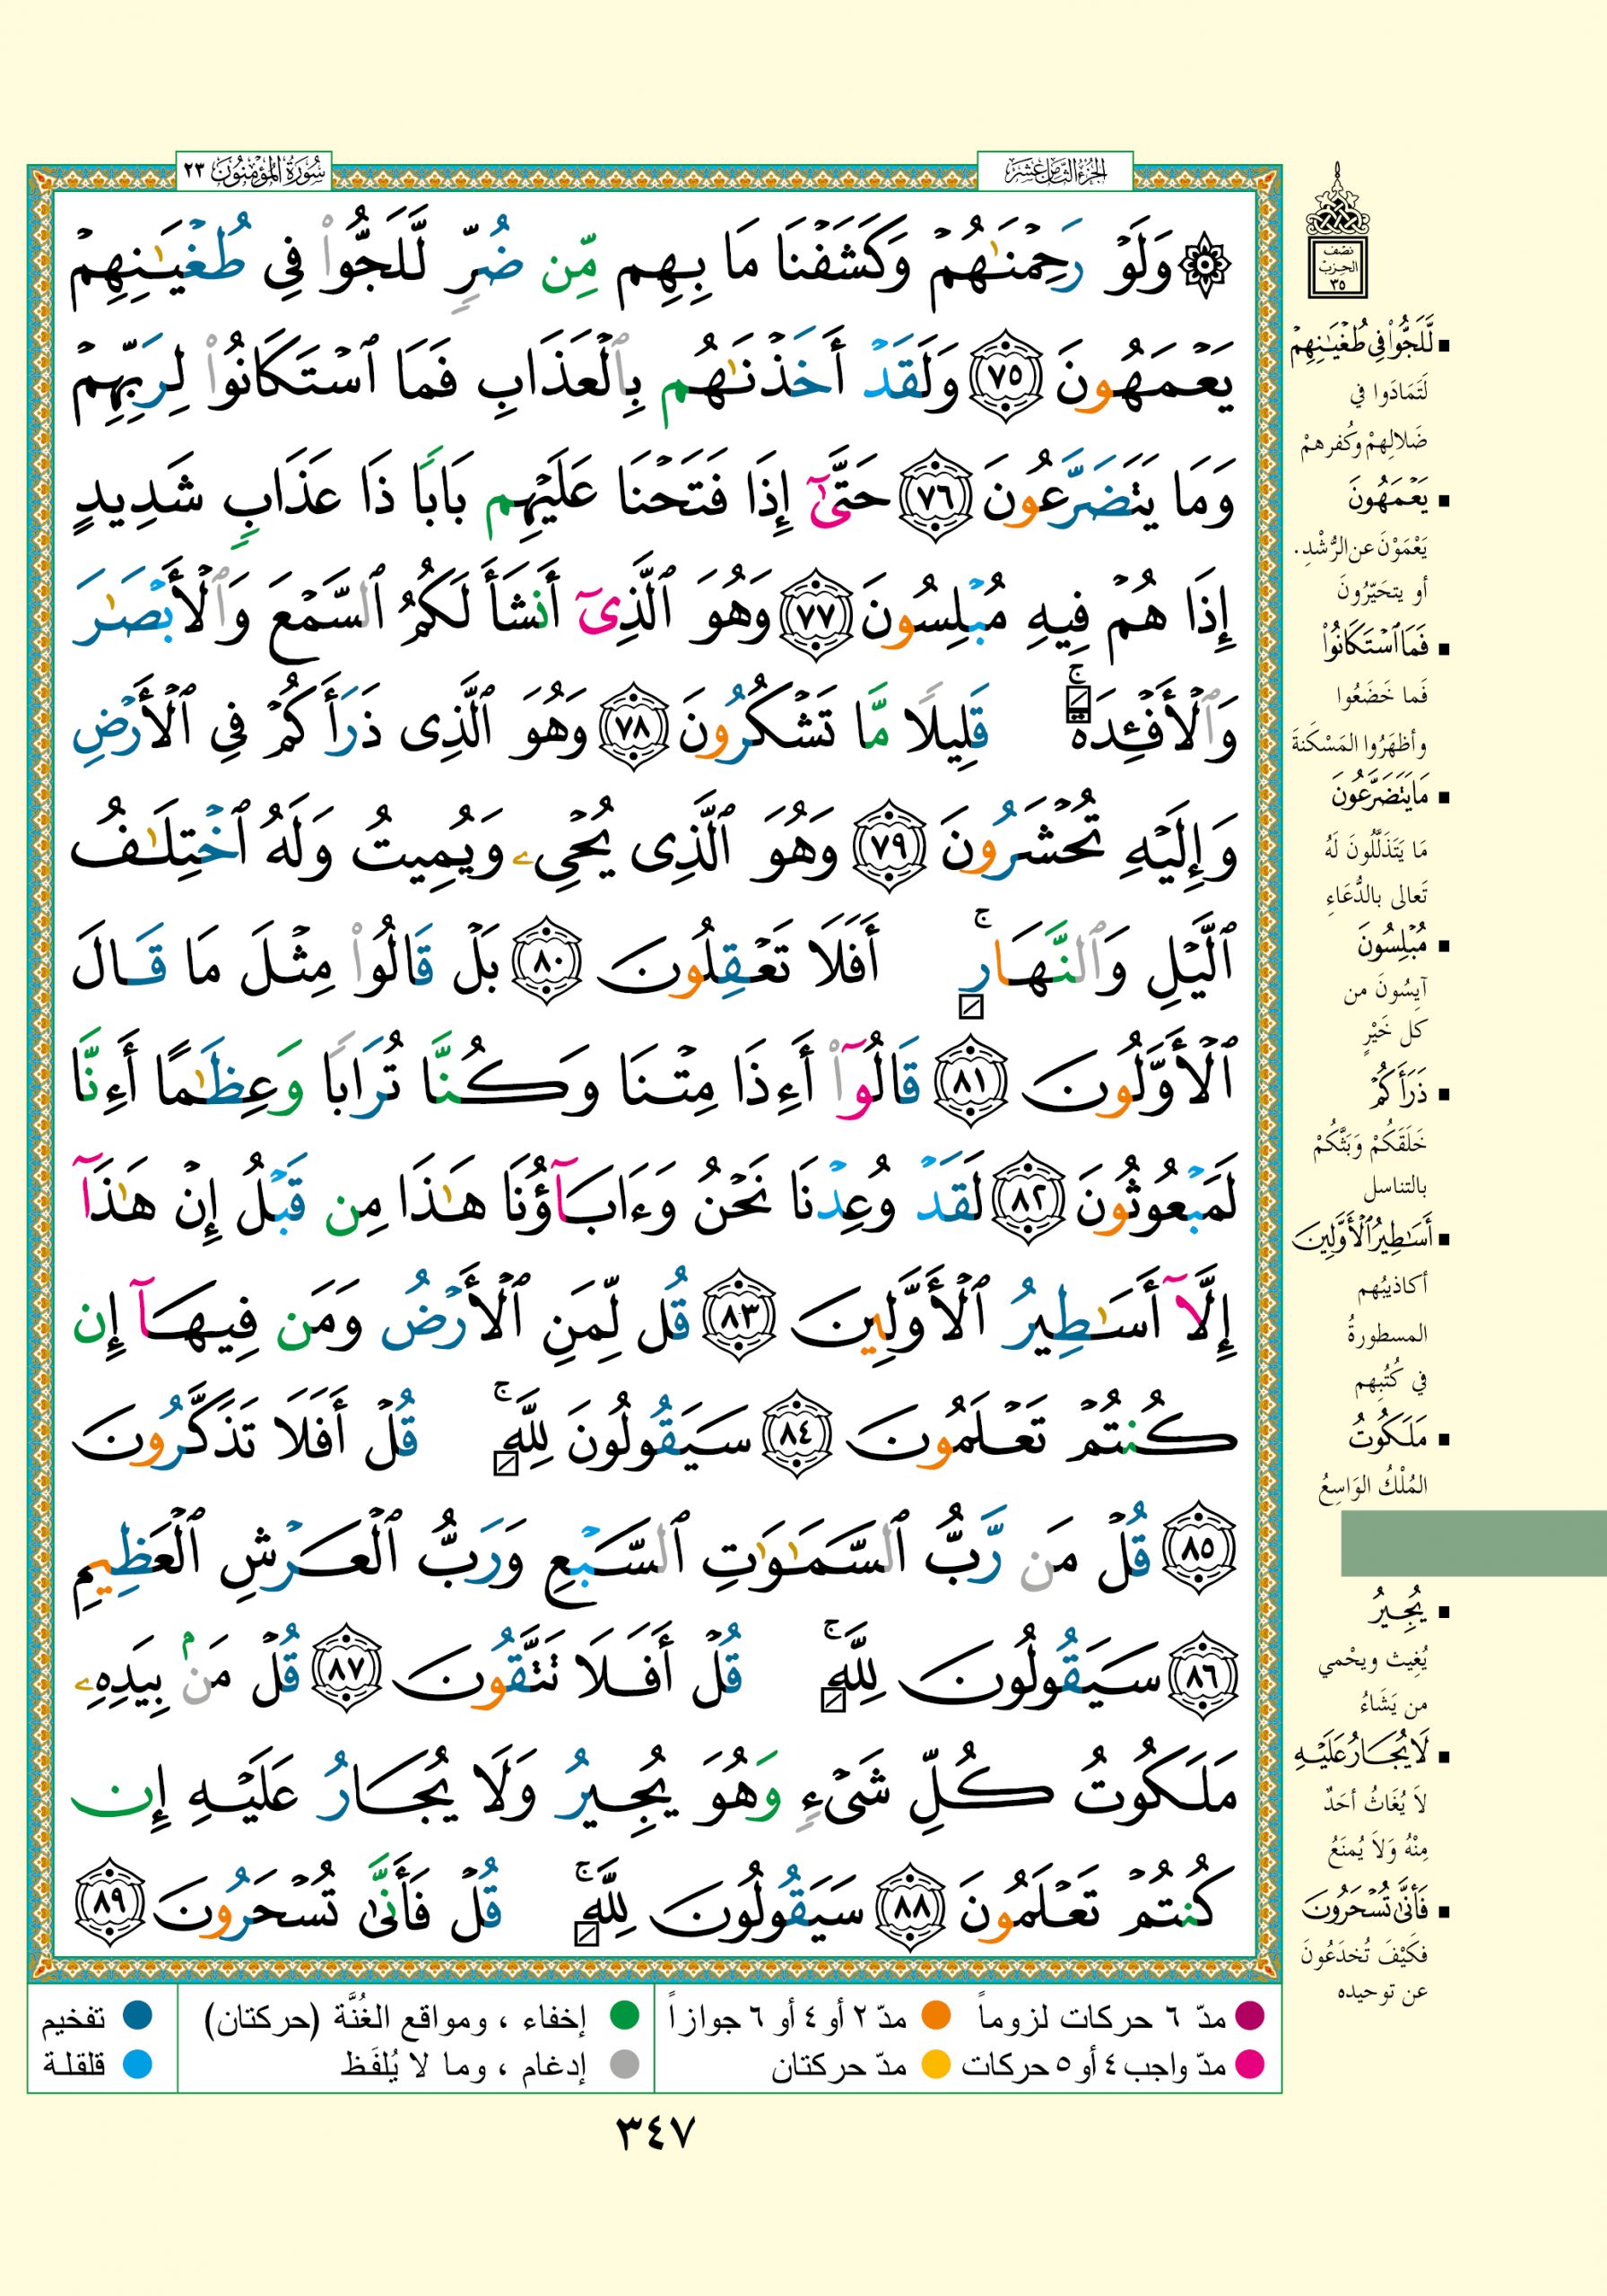 الجزء الثامن عشر
سورة المؤمنون ٢٣
۞ وَلَوْ رَحِمْنَٰهُمْ وَكَشَفْنَا مَا بِهِم مِّن ضُرٍّ لَّلَجُّوا۟ فِى طُغْيَٰنِهِمْ
يَعْمَهُونَ ٧٥ وَلَقَدْ أَخَذْنَٰهُم بِٱلْعَذَابِ فَمَا ٱسْتَكَانُوا۟ لِرَبِّهِمْ
وَمَا يَتَضَرَّعُونَ ٧٦ حَتَّىٰٓ إِذَا فَتَحْنَا عَلَيْهِم بَابًا ذَا عَذَابٍ شَدِيدٍ
إِذَا هُمْ فِيهِ مُبْلِسُونَ ٧٧ وَهُوَ ٱلَّذِىٓ أَنشَأَ لَكُمُ ٱلسَّمْعَ وَٱلْأَبْصَٰرَ
وَٱلْأَفْـِٔدَةَ ۚ قَلِيلًا مَّا تَشْكُرُونَ ٧٨ وَهُوَ ٱلَّذِى ذَرَأَكُمْ فِى ٱلْأَرْضِ
وَإِلَيْهِ تُحْشَرُونَ ٧٩ وَهُوَ ٱلَّذِى يُحْىِۦ وَيُمِيتُ وَلَهُ ٱخْتِلَٰفُ
ٱلَّيْلِ وَٱلنَّهَارِ ۚ أَفَلَا تَعْقِلُونَ ٨٠ بَلْ قَالُوا۟ مِثْلَ مَا قَالَ
ٱلْأَوَّلُونَ ٨١ قَالُوٓا۟ أَءِذَا مِتْنَا وَكُنَّا تُرَابًا وَعِظَٰمًا أَءِنَّا
لَمَبْعُوثُونَ ٨٢ لَقَدْ وُعِدْنَا نَحْنُ وَءَابَآؤُنَا هَٰذَا مِن قَبْلُ إِنْ هَٰذَآ
إِلَّآ أَسَٰطِيرُ ٱلْأَوَّلِينَ ٨٣ قُل لِّمَنِ ٱلْأَرْضُ وَمَن فِيهَآ إِن
كُنتُمْ تَعْلَمُونَ ٨٤ سَيَقُولُونَ لِلَّهِ ۚ قُلْ أَفَلَا تَذَكَّرُونَ
٨٥ قُلْ مَن رَّبُّ ٱلسَّمَٰوَٰتِ ٱلسَّبْعِ وَرَبُّ ٱلْعَرْشِ ٱلْعَظِيمِ
٨٦ سَيَقُولُونَ لِلَّهِ ۚ قُلْ أَفَلَا تَتَّقُونَ ٨٧ قُلْ مَنۢ بِيَدِهِۦ
مَلَكُوتُ كُلِّ شَىْءٍ وَهُوَ يُجِيرُ وَلَا يُجَارُ عَلَيْهِ إِن
كُنتُمْ تَعْلَمُونَ ٨٨ سَيَقُولُونَ لِلَّهِ ۚ قُلْ فَأَنَّىٰ تُسْحَرُونَ ٨٩
نصف
الحزب
٣٥
▪ لَّلَجُّوا۟ فِى طُغْيَٰنِهِمْ
لَتَمَادَوا في
ضَلالِهِمْ وكُفرهمْ
▪ يَعْمَهُونَ
يَعْمَوْنَ عن الرُّشْدِ.
أو يتحَيّرُونَ
▪ فَمَا ٱسْتَكَانُوا۟
فَما خَضَعُوا
وأظهَرُوا المَسْكَنةَ
▪ مَا يَتَضَرَّعُونَ
مَا يَتَذَلَّلُونَ لَهُ
تَعالى بالدُّعَاءِ
▪ مُبْلِسُونَ
آيِسُونَ من
كل خَيْرٍ
▪ ذَرَأَكُمْ
خَلَقَكُمْ وَبَثَّكُمْ
بالتناسل
▪ أَسَٰطِيرُ ٱلْأَوَّلِينَ
أكاذيبُهم
المسطورةُ
في كُتُبِهم
▪ مَلَكُوتُ
المُلْكُ الوَاسِعُ
▪ يُجِيرُ
يُغِيث ويحْمي
من يَشَاءُ
▪ لَا يُجَارُ عَلَيْهِ
لاَ يُغَاثُ أحَدٌ
مِنْهُ وَلاَ يُمنَعُ
▪ فَأَنَّىٰ تُسْحَرُونَ
فكَيْفَ تُخدَعُونَ
عن توحيده
مدّ ٦ حركات لزوماً مدّ ٢ أو ٤ أو ٦ جوازاً إخفاء ، ومواقع الغُنَّة (حركتان) تفخيم
مدّ واجب ٤ أو ٥ حركات مدّ حركتان إدغام ، وما لا يُلفَظ قلقلة
٣٤٧